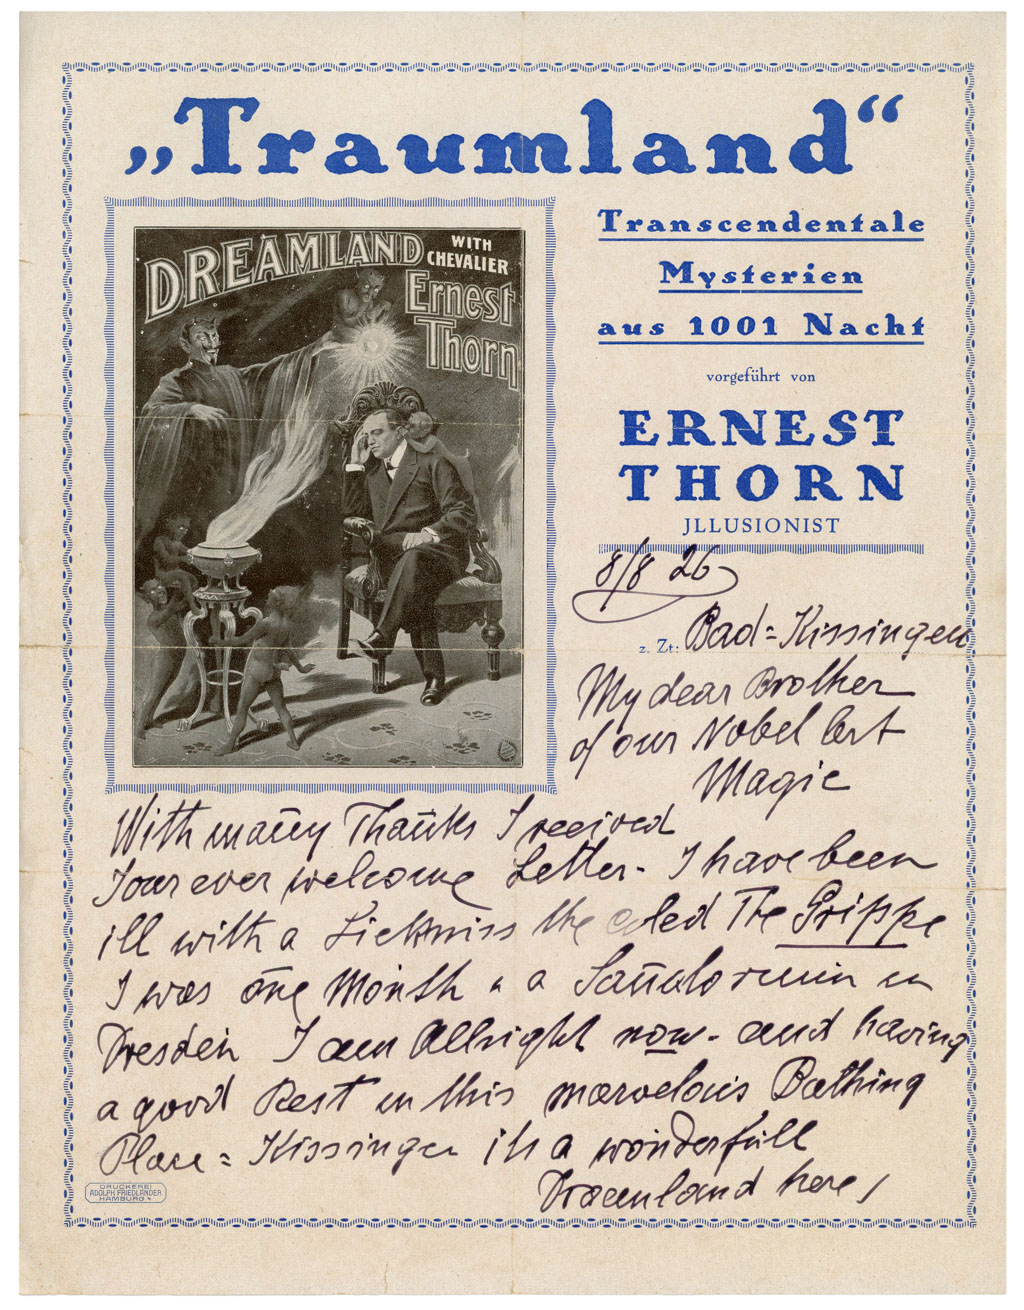 „Traumland“
DREAMLAND WITH CHEVALIER
Ernest
Thorn
Transcendentale
Mysterien
aus 1001 Nacht
vorgeführt von
ERNEST
THORN
JLLUSIONIST
8/8 26
z. Zt: Bad=Kissingen
My dear Brother
of our Nobel Art
Magic
With many Thanks I received
Your ever welcome Letter - I have been
ill with a Sickniss the caled The Grippe
I was one Month a Sanatorium in
Dresden I am Allright now - and having
a good Rest in this marvelous Bathing
Place = Kissingen its a wonderfull
Dreamland here,
DRUCKEREI
ADOLPH FRIEDLÄNDER
HAMBURG 4